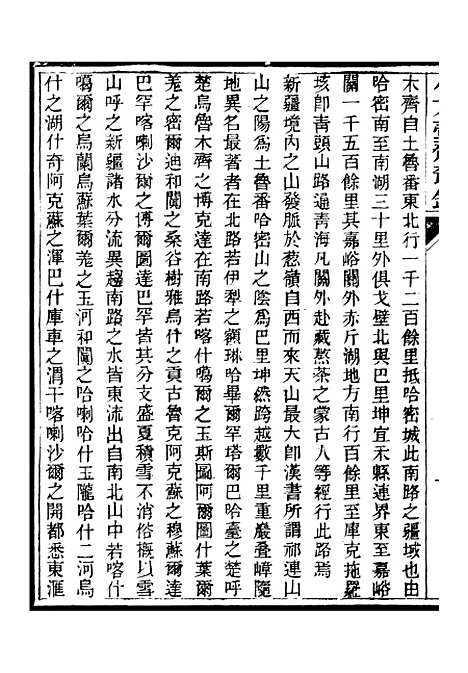 木齊自土魯番東北行一千二百餘里抵哈密城此南路之疆域也由
哈密南至南湖三十里外俱戈壁北與巴里坤宜禾縣連界東至嘉峪
關一千五百餘里其嘉峪關外赤斤湖地方南行百餘里至庫克拖羅
垓卽青頭山路通青海凡關外赴藏熬茶之蒙古人等經行此路焉
新疆境內之山發脈於葱嶺自西而來天山最大卽漢書所謂祁連山
山之陽爲土魯番哈密山之陰爲巴里坤然跨越數千里重巖疊嶂隨
地異名最著者在北路若伊犁之額琳哈畢爾罕塔爾巴哈臺之楚呼
楚烏魯木齊之博克達在南路若喀什噶爾之玉斯圖阿爾圖什葉爾
羌之密爾迪和闐之桑谷樹雅烏什之貢古魯克阿克蘇之穆蘇爾達
巴罕喀喇沙爾之博爾圖達巴罕皆其分支盛夏積雪不消俗槪以雪
山呼之新疆諸水分流異趨南路之水皆東流出自南北山中若喀什
噶爾之烏蘭烏蘇葉爾羌之玉河和闐之哈喇哈什玉隴哈什二河烏
什之湖什奇阿克蘇之渾巴什庫車之渭干喀喇沙爾之開都悉東滙